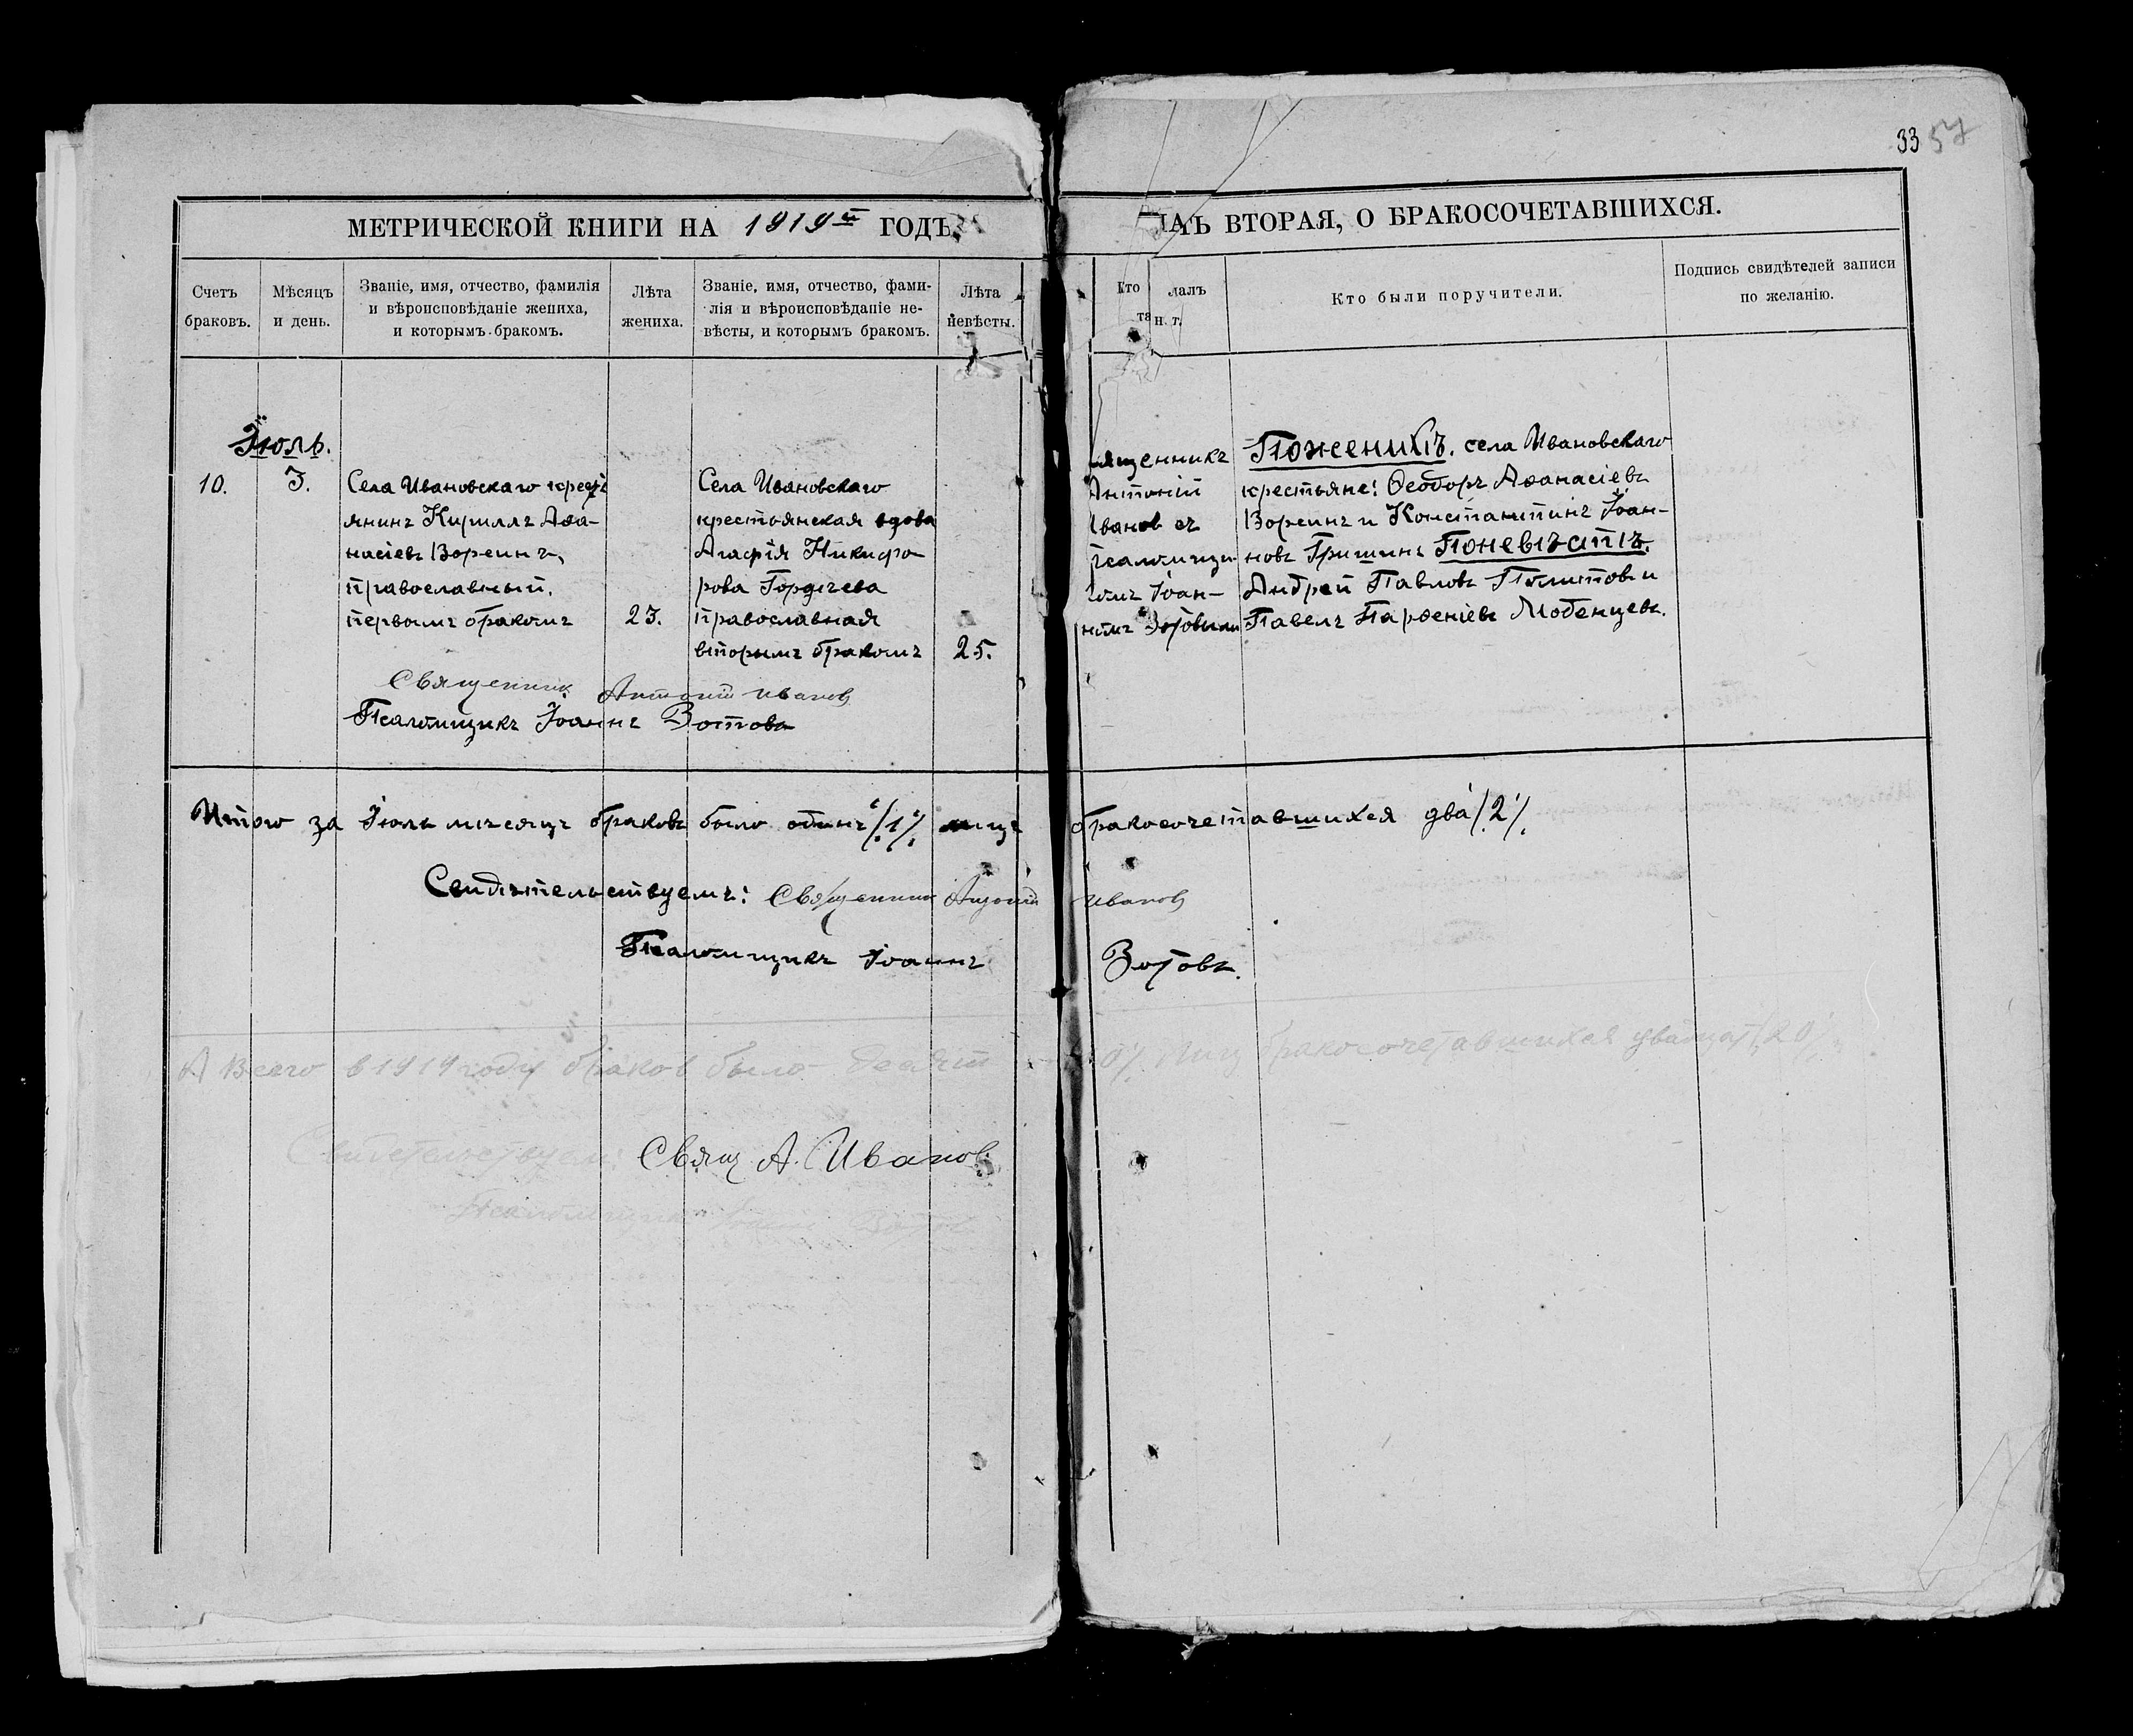 33 57
МЕТРИЧЕСКОЙ КНИГИ НА 1919й ГОДЪ,
ВТОРАЯ, О БРАКОСОЧЕТАВШИХСЯ.
Счетъ браковъ.
Мѣсяцъ и день.
Званіе, имя, отчество, фамилія
и вѣроисповѣданіе жениха,
и которымъ бракомъ.
Лѣта
жениха.
Званіе, имя, отчество, фами-
лія и вѣроисповѣданіе не-
вѣсты, и которымъ бракомъ.
Лѣта
невѣсты.
Кто
Кто были поручители.
Подпись свидѣтелей записи
по желанію.
Іюль.
10.
3.
Села Ивановскаго кресть
янинъ Кириллъ Аѳа-
насіевъ
православный,
первымъ бракомъ
23.
Села Ивановскаго
крестьянская вдова
Агафія Никифо
рова
православная
вторымъ бракомъ
25.
ященникъ
Антоній
Иванов съ
псаломщи-
комъ Іоан-
номъ Зотовымъ
По женихѣ. села Ивановскаго
крестьяне: Ѳеодоръ Аѳанасіевъ
и Константинъ Іоан-
новъ Гришинъ По невѣстѣ.
Андрей Павловъ и
Павелъ Парѳеніевъ
Священник Антоній Иванов
Псаломщикъ Іоаннъ Зотовъ
Итого за Іюль мѣсяцъ браковъ было одинъ /1/. лицъ бракосочетавшихся два /2/.
Свидѣтельствуемъ: Священник Антоній Иванов
Псаломщикъ Іоаннъ Зотовъ.
А всего в 1919 году браков было десять лиц бракосочетавшихся двадцать /20/
Свидетельствуем: Свящ А. Иванов
Псаломщик Иоанн Зотов